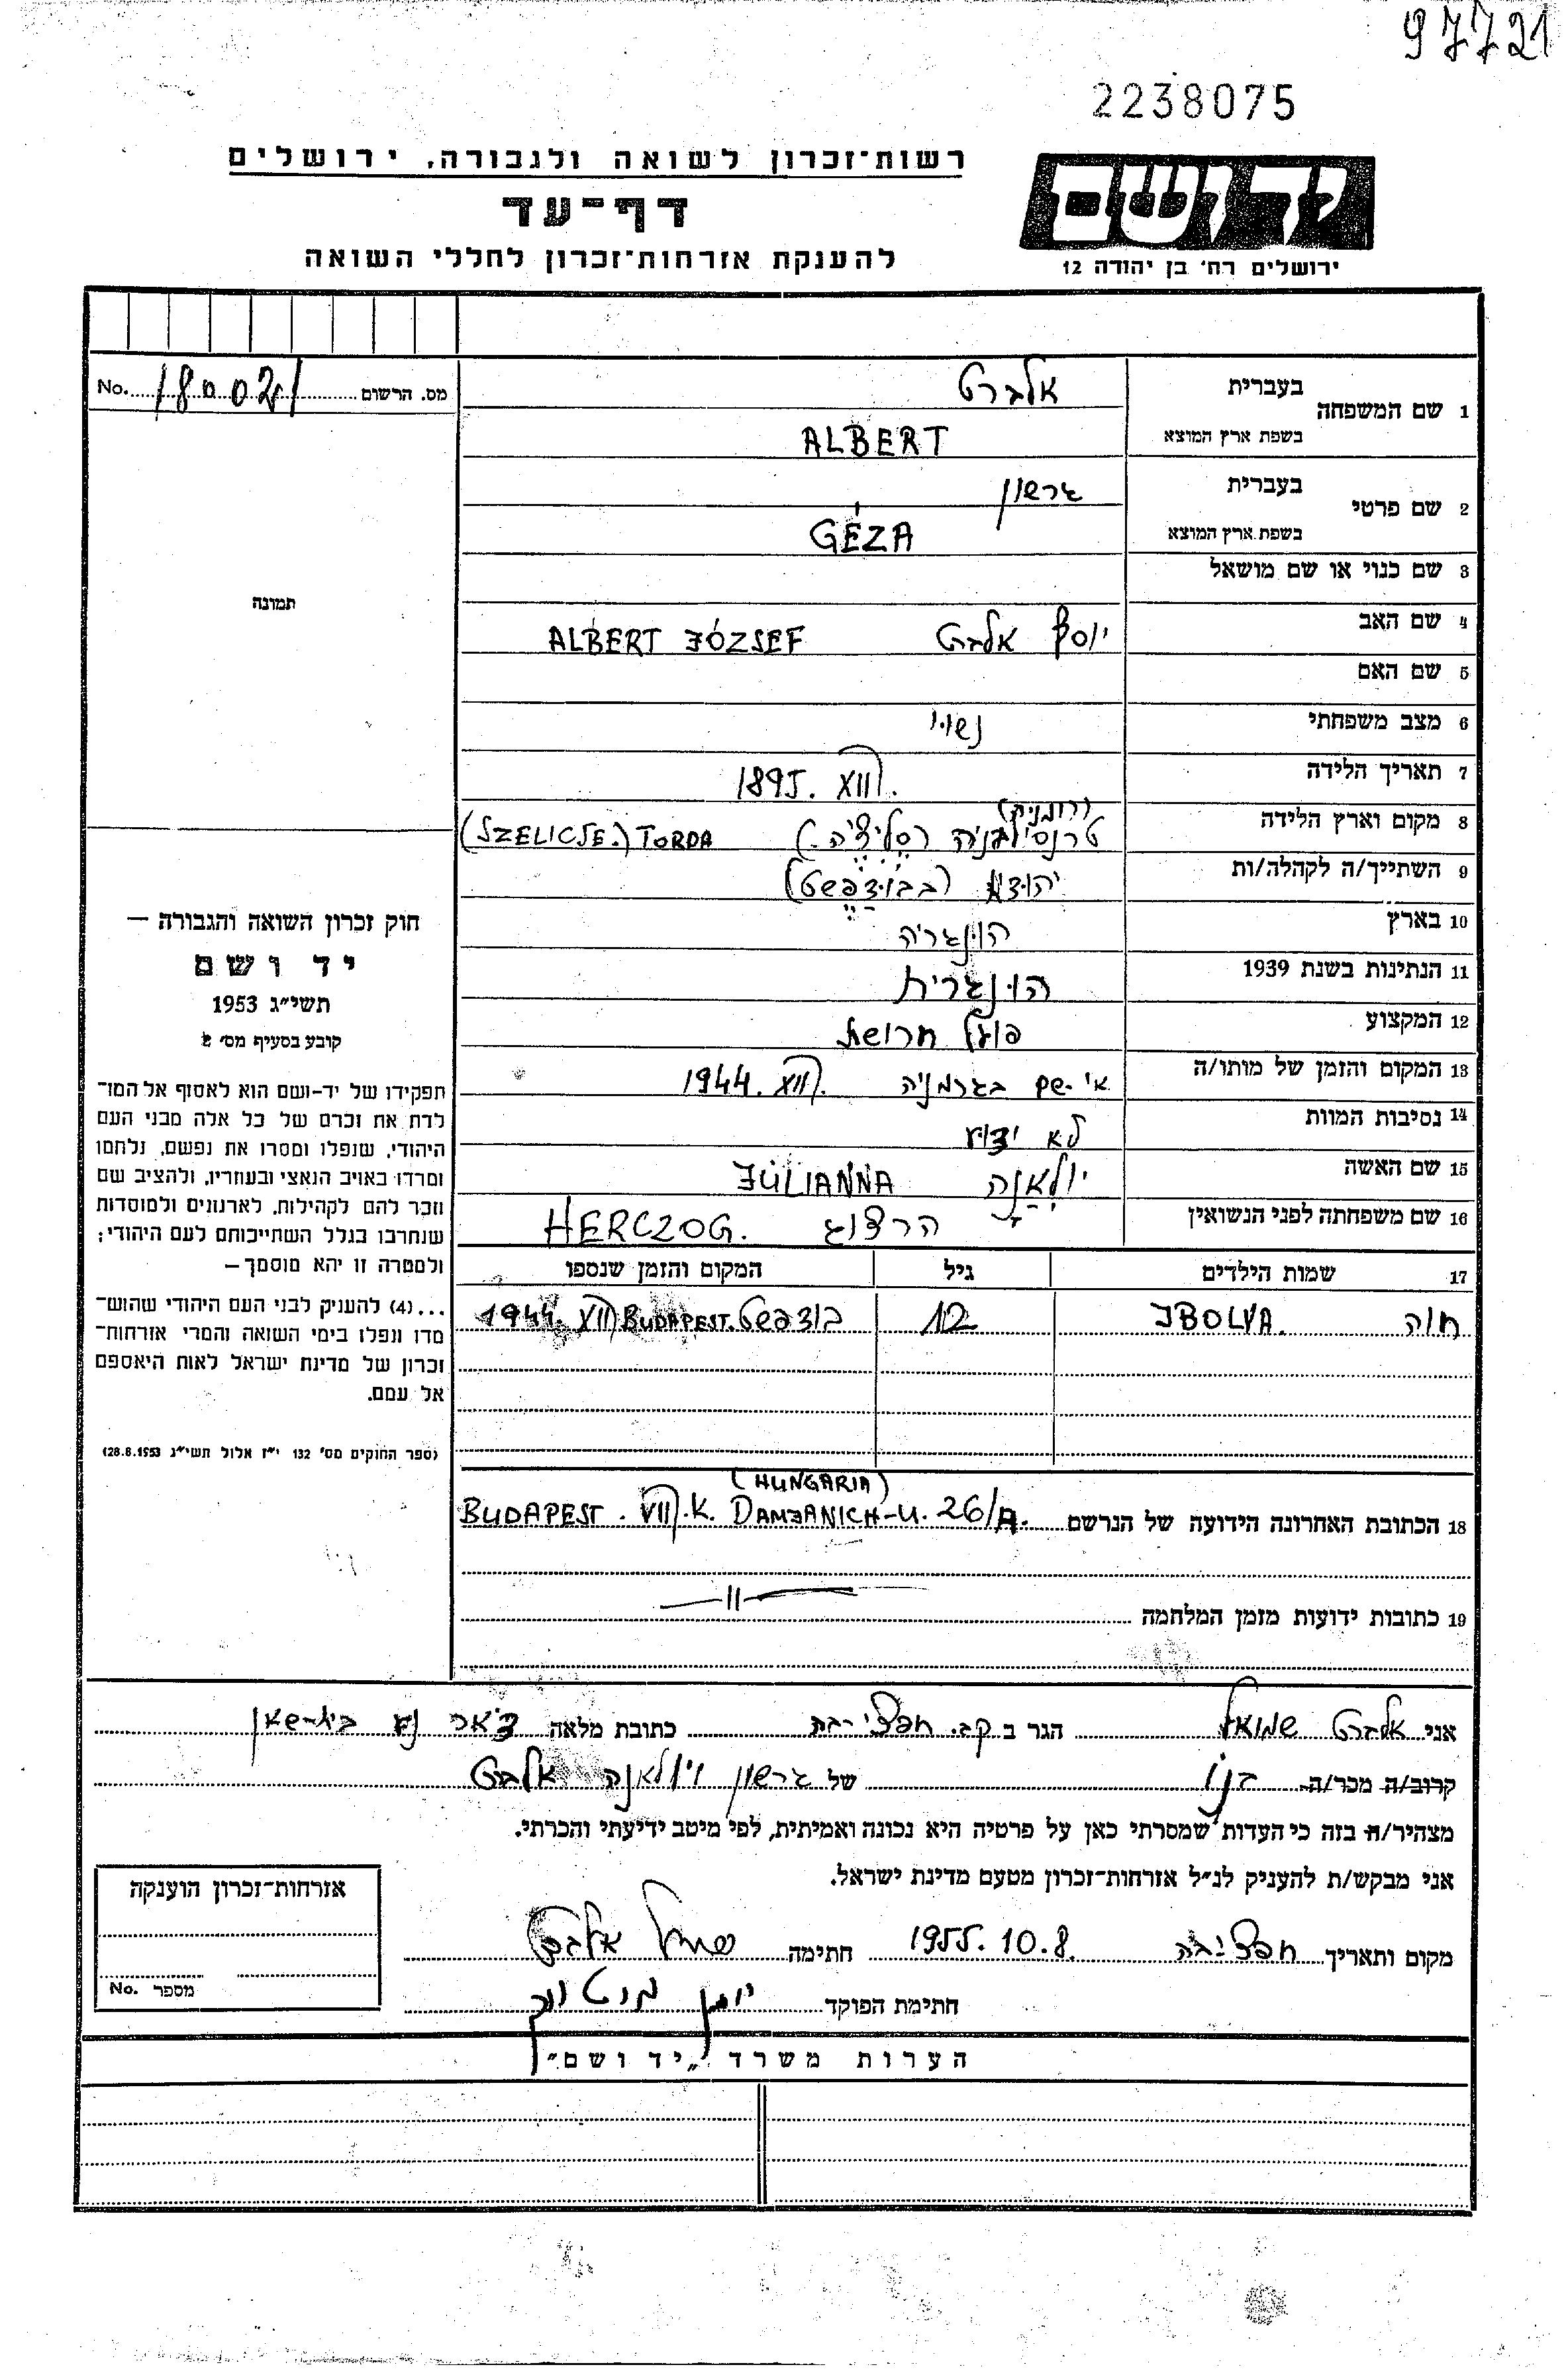 97721
2238075
רשות־זכרון לשואה ולגבורה, ירושלים
דף־עד
להענקת אזרחות־זכרון לחללי השואה
יד ושם
ירושלים רח' בן יהודה 12
מס. הרשום 180021 No.
1 שם המשפחה בעברית אלברט
בשפת ארץ המוצא ALBERT
2 שם פרטי בעברית גרשון
בשפת ארץ המוצא GÉZA
3 שם כנוי או שם מושאל
תמונה
4 שם האב יוסף אלברט ALBERT JÓZSEF
5 שם האם
6 מצב משפחתי נשוי
7 תאריך הלידה 1895. XII.
(רומניה)
8 מקום וארץ הלידה טרנסילבניה (סליצ'ה.) (SZELICSE.) TORDA
9 השתייך/ה לקהלה/ות (בבודפשט)
10 בארץ הונגריה
11 הנתינות בשנת 1939 הונגרית
12 המקצוע פועל חרושת
13 המקום והזמן של מותו/ה אי-שם בגרמניה 1944. XII.
14 נסיבות המוות לא ידוע
15 שם האשה יוליאנה JULIANNA
16 שם משפחתה לפני הנשואין הרצוג HERCZOG.
17 שמות הילדים גיל המקום והזמן שנספו
חוה IBOLYA. 12 בודפשט BUDAPEST. 1944. XII
חוק זכרון השואה והגבורה —
יד ושם
תשי"ג 1953
קובע בסעיף מס' 2
תפקידו של יד-ושם הוא לאסוף אל המו־
לדת את זכרם של כל אלה מבני העם
היהודי, שנפלו ומסרו את נפשם, נלחמו
ומרדו באויב הנאצי ובעוזריו, ולהציב שם
וזכר להם לקהילות, לארגונים ולמוסדות
שנחרבו בגלל השתייכותם לעם היהודי;
ולמטרה זו יהא מוסמך—
...(4) להעניק לבני העם היהודי שהוש־
מדו ונפלו בימי השואה והמרי אזרחות־
זכרון של מדינת ישראל לאות היאספם
אל עמם.
(ספר החוקים מס' 132 י"ז אלול תשי"ג 28.8.1953)
(HUNGARIA)
18 הכתובת האחרונה הידועה של הנרשם BUDAPEST. VII.K. DAMJANICH-U. 26/A.
19 כתובות ידועות מזמן המלחמה —11—
אני אלברט שמואל הגר ב קב. חפצי-בה כתובת מלאה דאר נע בית-שאן
קרוב/ה מכר/ה בנו של גרשון ויוליאנה אלברט
מצהיר/ה בזה כי העדות שמסרתי כאן על פרטיה היא נכונה ואמיתית, לפי מיטב ידיעתי והכרתי.
אני מבקש/ת להעניק לנ"ל אזרחות־זכרון מטעם מדינת ישראל.
מקום ותאריך חפצי-בה 1955. 10. 8. חתימה שמואל אלברט
חתימת הפוקד
אזרחות־זכרון הוענקה
מספר No.
הערות משרד „יד ושם"